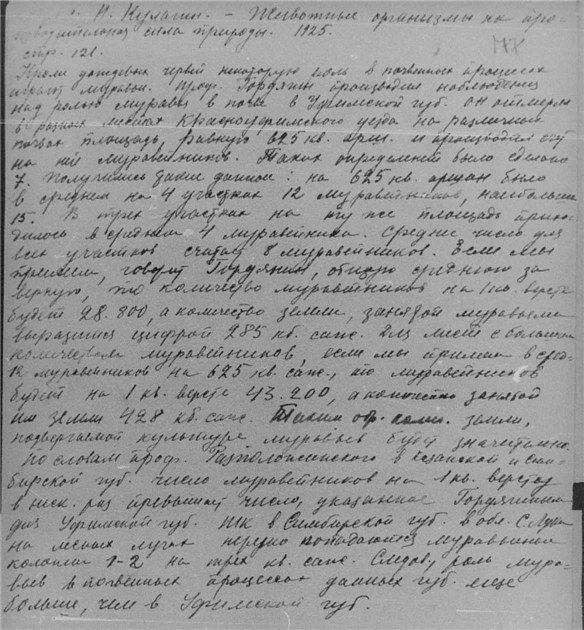 Н. Кулагин. - Животные организмы как про-
изводительная сила природы. 1925.
стр. 121.
Кроме дождевых червей некоторую роль в почвенных процессах
играют муравьи. Проф. Гордягин производил наблюдения
над ролью муравьев в почве в Уфимской губ. он отмерял
в разных местах Красноуфимского уезда на различных
почвах площадь, равную 625 кв. арш. и производил счет
на ней муравейников. Таких определений было сделано
7. Получились такие данные: на 625 кв. аршин было
в среднем на 4 участках 12 муравейников, наибольшее
15. В трех участках на ту же площадь прихо-
дилось в среднем 4 муравейника. Среднее число для
всех участков считаем 8 муравейников. Если мы
примем, говорит Гордягин, общую среднюю за
верную, то количество муравейников на 1 кв. версте
будет 28.800, а количество земли, занятой муравьями
выразится цифрой 285 кб. саж. Для мест с большим
количеством муравейников, если мы примем в сред-
12 муравейников на 625 кв. саж., то муравейников
будет на 1 кв. версте 43.200, а количество занятой
им земли 428 кб. саж. Таким обр. колич. земли,
подвергаемой культуре муравьев будет значительно.
По словам проф. Расположенского в Казанской и Сим-
бирской губ. число муравейников на 1 кв. версту
в неск. раз превышает число, указанное Гордягиным
для Уфимской губ. в Симбирской губ. в обл.
на лесных лугах нередко попадаются муравьиные
колонии 1-2 на трех кв. саж. Следов, роль мура-
вьев в почвенных процессах данных губ. еще
больше, чем в Уфимской губ.